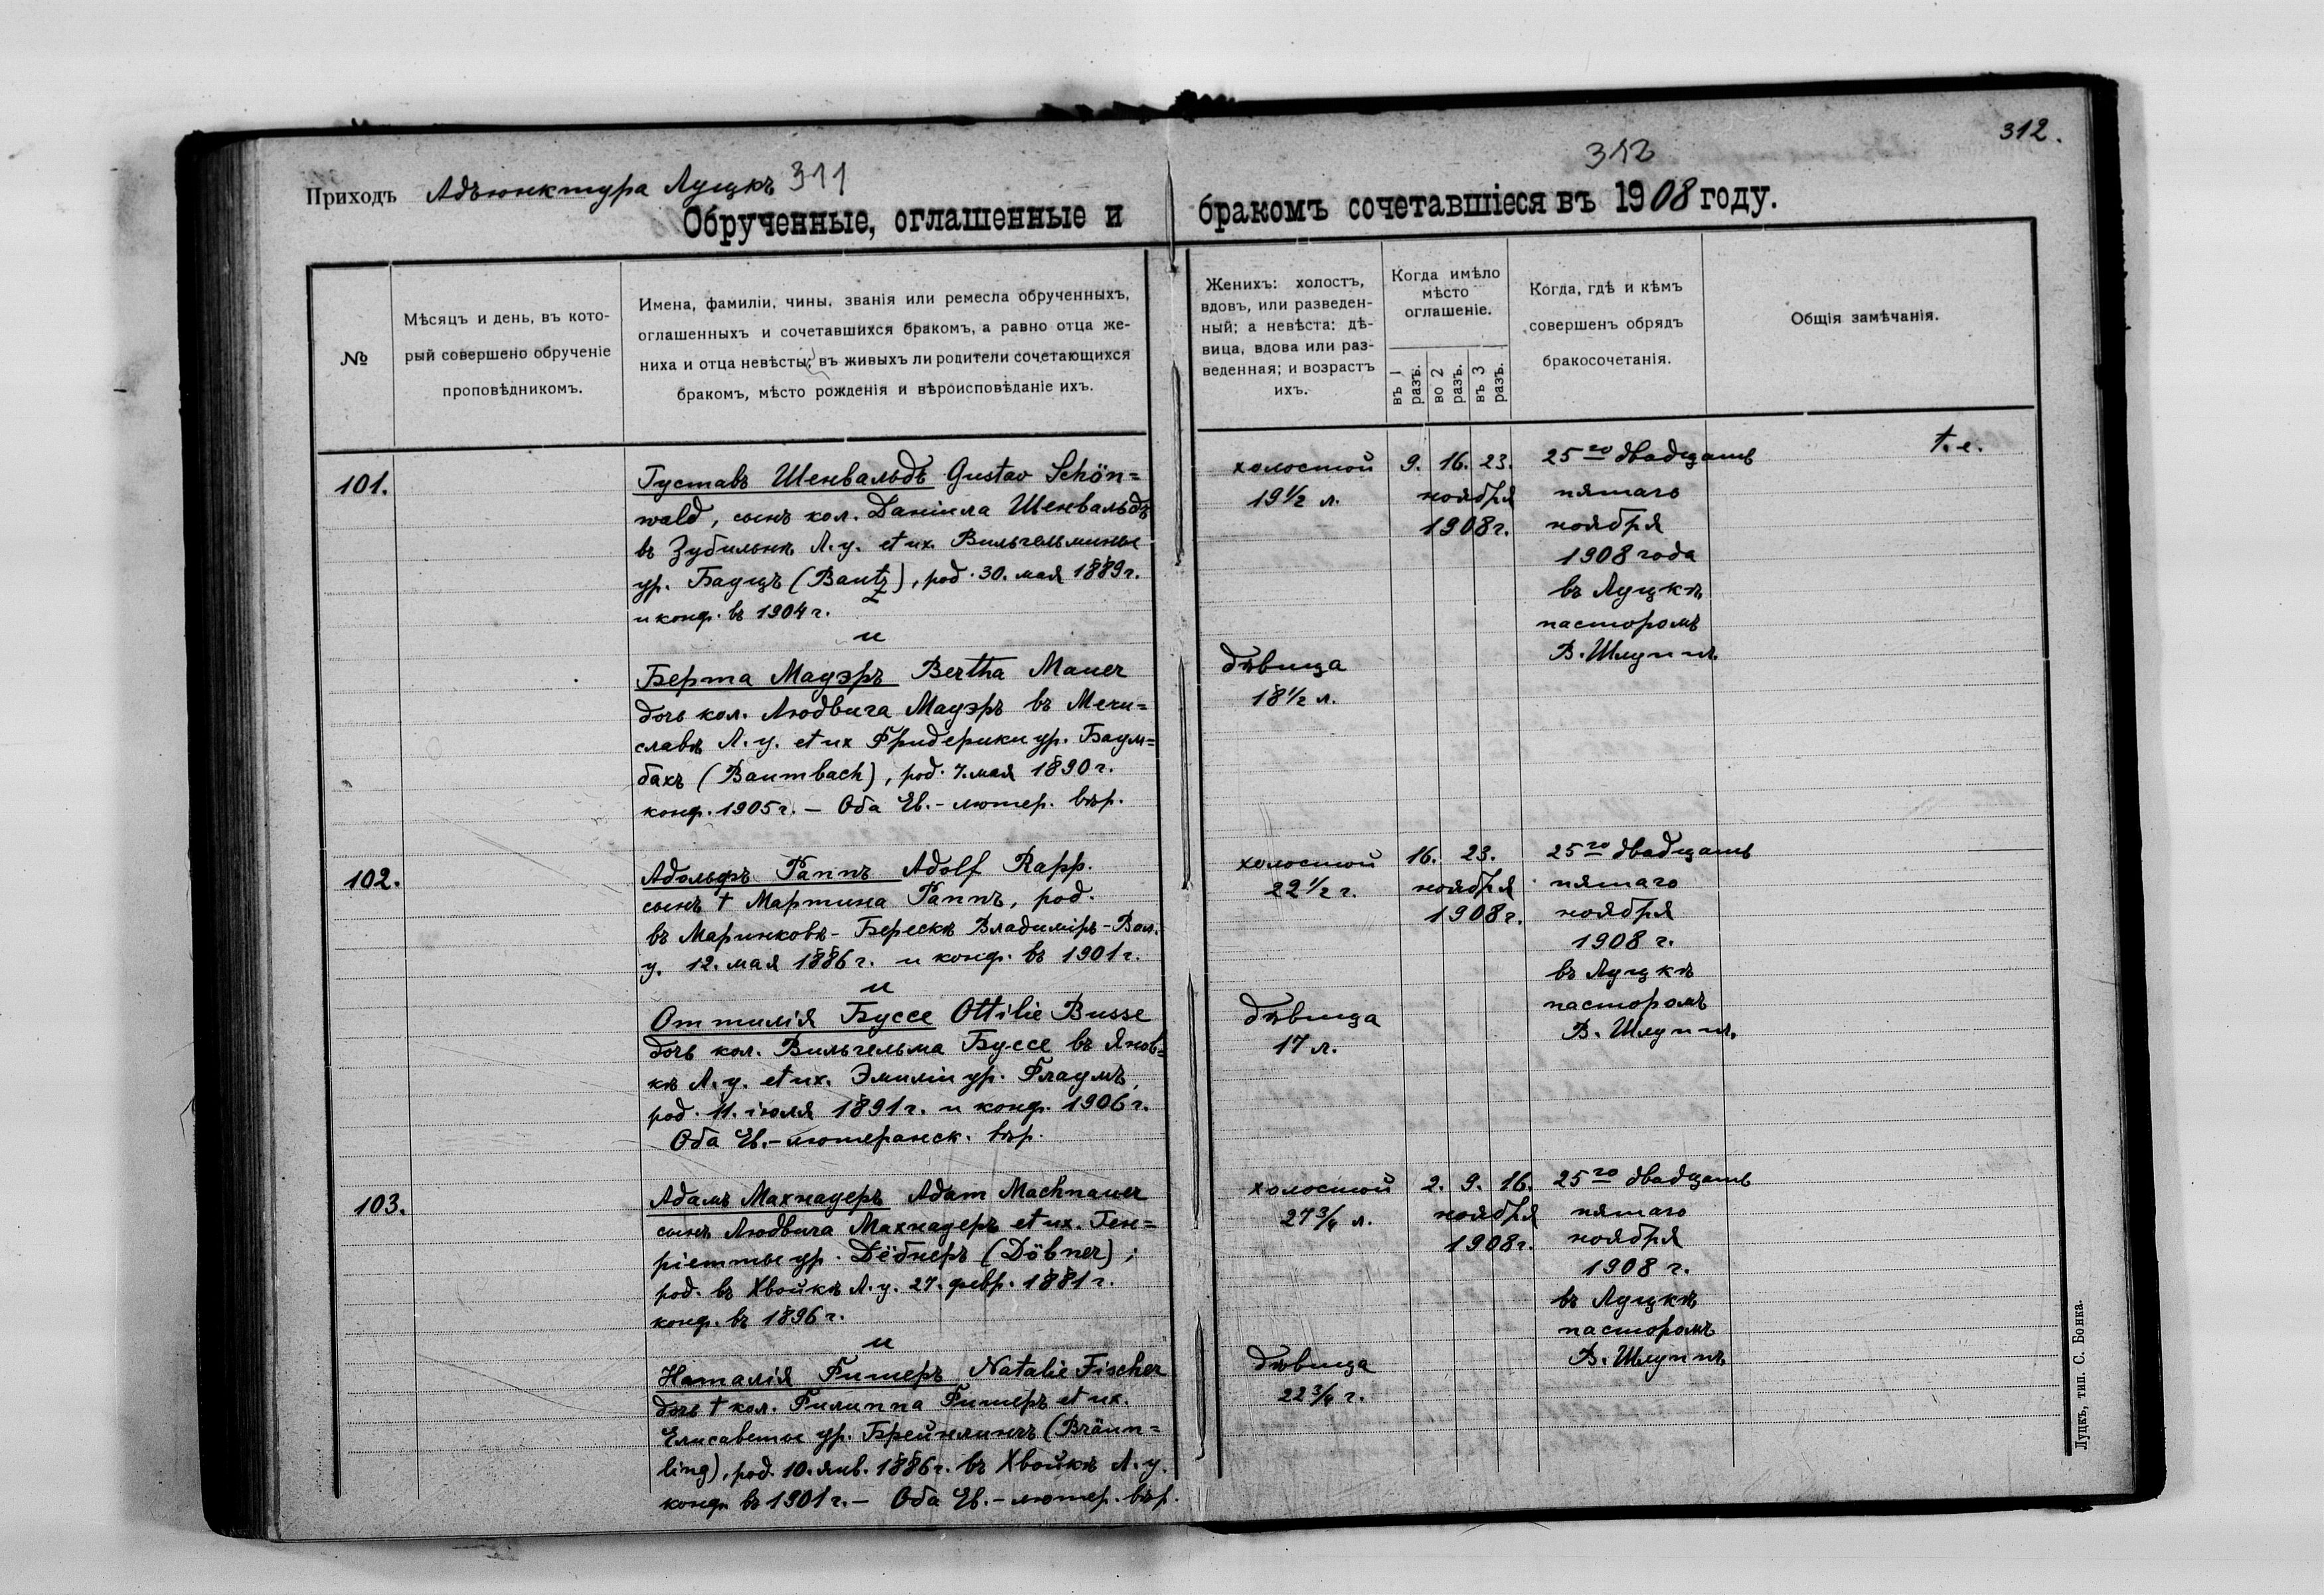 312.
311
312
Приходъ Адъюнктура Луцкъ
Обрученные, оглашенные и бракомъ сочетавшіеся въ 1908 году.
№
Мѣсяцъ и день, въ кото-
рый совершено обрученіе
проповѣдникомъ.
Имена, фамиліи, чины, званія или ремесла обрученныхъ,
оглашенныхъ и сочетавшихся бракомъ, а равно отца же-
ниха и отца невѣсты; въ живыхъ ли родители сочетающихся
бракомъ, мѣсто рожденія и вѣроисповѣданіе ихъ.
Женихъ: холостъ,
вдовъ, или разведен-
ный; а невѣста: дѣ-
вица, вдова или раз-
веденная; и возрастъ
ихъ.
Когда имѣло
мѣсто
оглашеніе.
въ 1 разъ.
во 2 разъ.
въ 3 разъ.
Когда, гдѣ и кѣмъ
совершенъ обрядъ
бракосочетанія.
Общія замѣчанія.
101.
Густавъ Шенвальдъ Gustav Schön=
wald, сынъ кол. Даніила Шенвальдъ
въ Зубильнѣ Л. у. et ux. Вильгельмины
ур. Бауцъ (Bautz), род. 30. мая 1889 г.
и конф. въ 1904 г.
и
Берта Мауэръ Bertha Mauer
дочь кол. Людвига Мауэръ въ Мечи=
славѣ Л. у. et ux Фридерики ур. Баум=
бахъ (Baumbach), род. 7. мая 1890 г.
конф. 1905 г. — Оба Ев.-лютер. вѣр.
холостой
19 1/2 л.
дѣвица
18 1/2 л.
9. 16. 23.
ноября
1908 г.
25го двадцать
пятаго
ноября
1908 года
въ Луцкѣ
пасторомъ
В. Шлуппъ
t. e.
102.
Адольфъ Раппъ Adolf Rapp.
сынъ † Мартина Раппъ, род.
въ Маринковѣ-Берескѣ Владиміръ-Вол.
у. 12. мая 1886 г. и конф. въ 1901 г.
и
Оттилія Буссе Ottilie Busse
дочь кол. Вильгельма Буссе въ Янов=
кѣ Л. у. et ux. Эмиліи ур. Флаумъ,
род. 11. іюля 1891 г. и конф. 1906 г.
Оба Ев.-лютеранск. вѣр.
холостой
22 1/2 г.
дѣвица
17 л.
16. 23.
ноября
1908 г.
25го двадцать
пятаго
ноября
1908 г.
въ Луцкѣ
пасторомъ
В. Шлуппъ
103.
Адамъ Махнауеръ Adam Machnauer
сынъ Людвига Махнауеръ et ux. Ген=
ріетты ур. Дёбнеръ (Döbner);
род. въ Хвойкѣ Л. у. 27. февр. 1881 г.
конф. въ 1896 г.
и
Наталія Фишеръ Natalie Fischer
дочь † кол. Филиппа Фишеръ et ux.
Елисаветы ур. Брейнлингъ (Bräun=
ling), род. 10. янв. 1886 г. въ Хвойкѣ Л. у.
конф. въ 1901 г. — Оба Ев.-лютер. вѣр.
холостой
27 3/4 л.
дѣвица
22 3/4 г.
2. 9. 16.
ноября
1908 г.
25го двадцать
пятаго
ноября
1908 г.
въ Луцкѣ
пасторомъ
В. Шлуппъ
Луцкъ, тип. С. Бонка.